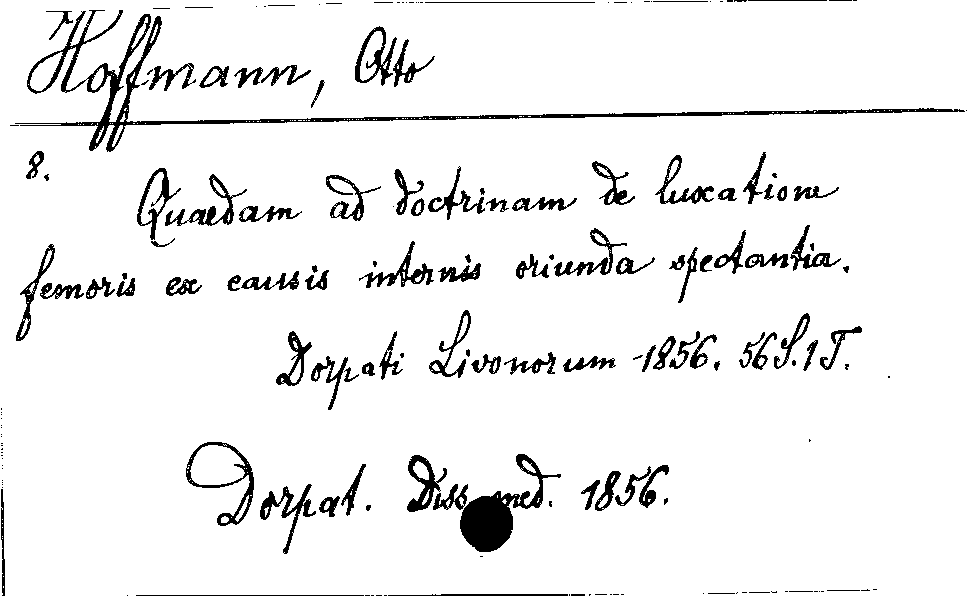 Hoffmann, Otto
8.
Quaedam ad doctrinam de luxatione
femoris ex causis internis oriunda spectantia.
Dorpati Livonorum 1856. 56 S. 1 T.
Dorpat. Diss. med. 1856.